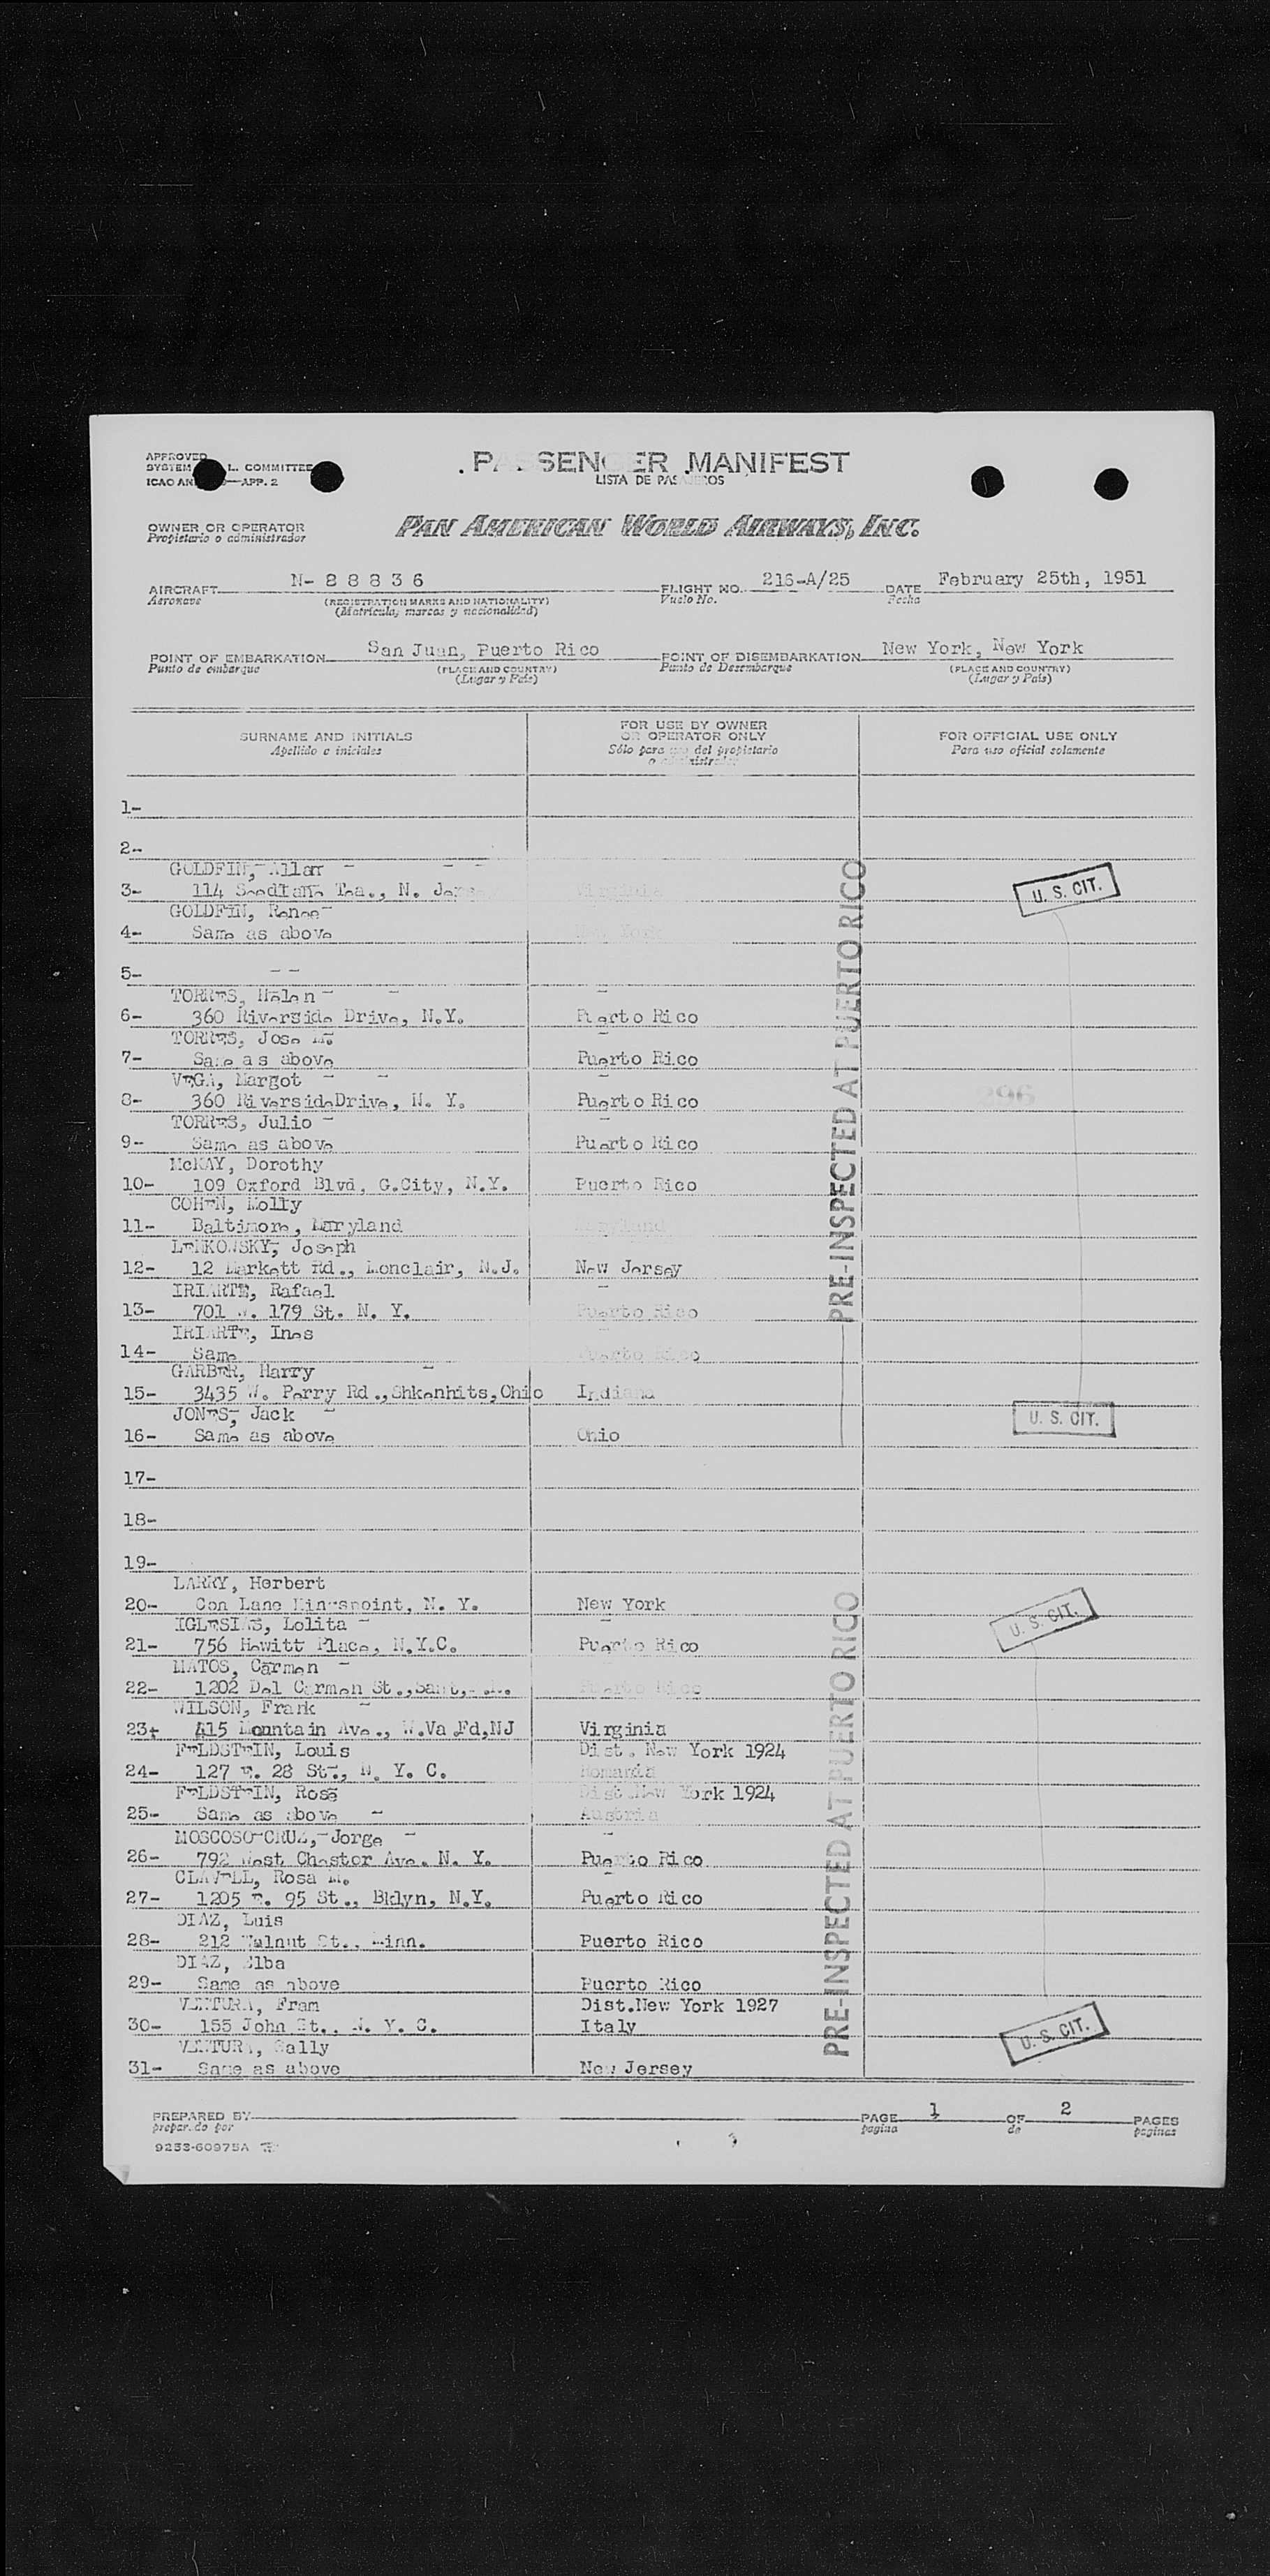 APPROVED
SYSTEM L. COMMITTEE
ICAO APP. 2
PASSENGER MANIFEST
LISTA DE PASAJEROS
OWNER OR OPERATOR
Propietario o administrador
PAN AMERICAN WORLD AIRWAYS, INC.
AIRCRAFT N- 8 8 8 3 6 FLIGHT NO. 216-A/25 DATE February 25th, 1951
Aeronave (REGISTRATION MARKS AND NATIONALITY) Vuelo No. Fecha
(Matricula, marcas y nacionalidad)
POINT OF EMBARKATION San Juan, Puerto Rico POINT OF DISEMBARKATION New York, New York
Punto de embarque (PLACE AND COUNTRY) Punto de Desembarque (PLACE AND COUNTRY)
(Lugar y Pais) (Lugar y Pais)
SURNAME AND INITIALS FOR USE BY OWNER OR OPERATOR ONLY FOR OFFICIAL USE ONLY
Apellido e iniciales Sólo para uso del propietario o administrador Para uso oficial solamente
1-
2-
GOLDFIN, Allan
3- 114 N. Virginia U. S. CIT.
GOLDFIN, Renee
4- Same as above New York
5-
TORRES, Helen
6- 360 Riverside Drive, N.Y. Puerto Rico
TORRES, Jose M.
7- Same as above Puerto Rico
VEGA, Margot
8- 360 RiversideDrive, N. Y. Puerto Rico 296
TORRES, Julio
9- Same as above Puerto Rico
McKAY, Dorothy
10- 109 Oxford Blvd, G.City, N.Y. Puerto Rico
COHEN, Molly
11- Baltimore, Maryland Maryland
LENKOWSKY, Joseph
12- 12 Markett Rd., Monclair, N.J. New Jersey
IRIARTE, Rafael
13- 701 W. 179 St. N. Y. Puerto Rico
IRIARTE, Ines
14- Same Puerto Rico
GARBER, Harry
15- 3435 W. Perry Rd.,Shkenhits,Ohio Indiana
JONES, Jack U. S. CIT.
16- Same as above Ohio
PRE-INSPECTED AT PUERTO RICO
17-
18-
19-
LARRY, Herbert
20- Con Lane Kingspoint, N. Y. New York U. S. CIT.
IGLESIAS, Lolita
21- 756 Hewitt Place, N.Y.C. Puerto Rico
MATOS, Carmen
22- 1202 Del Carmen St., Puerto Rico
WILSON, Frank
23- 415 Mountain Ave., W.Va.Fd,NJ Virginia
FELDSTEIN, Louis Dist. New York 1924
24- 127 E. 28 St., N. Y. C. Romania
FELDSTEIN, Rose Dist.New York 1924
25- Same as above Austria
MOSCOSO-CRUZ, Jorge
26- 792 West Chester Ave. N. Y. Puerto Rico
CLAVELL, Rosa M.
27- 1205 E. 95 St., Bklyn, N.Y. Puerto Rico
DIAZ, Luis
28- 212 Walnut St., Minn. Puerto Rico
DIAZ, Elba
29- Same as above Puerto Rico
VENTURA, Fram Dist.New York 1927
30- 155 John St., N. Y. C. Italy U. S. CIT.
VENTURA, Sally
31- Same as above New Jersey
PRE-INSPECTED AT PUERTO RICO
PREPARED BY PAGE 1 OF 2 PAGES
preparado por pagina de paginas
9253-60975A